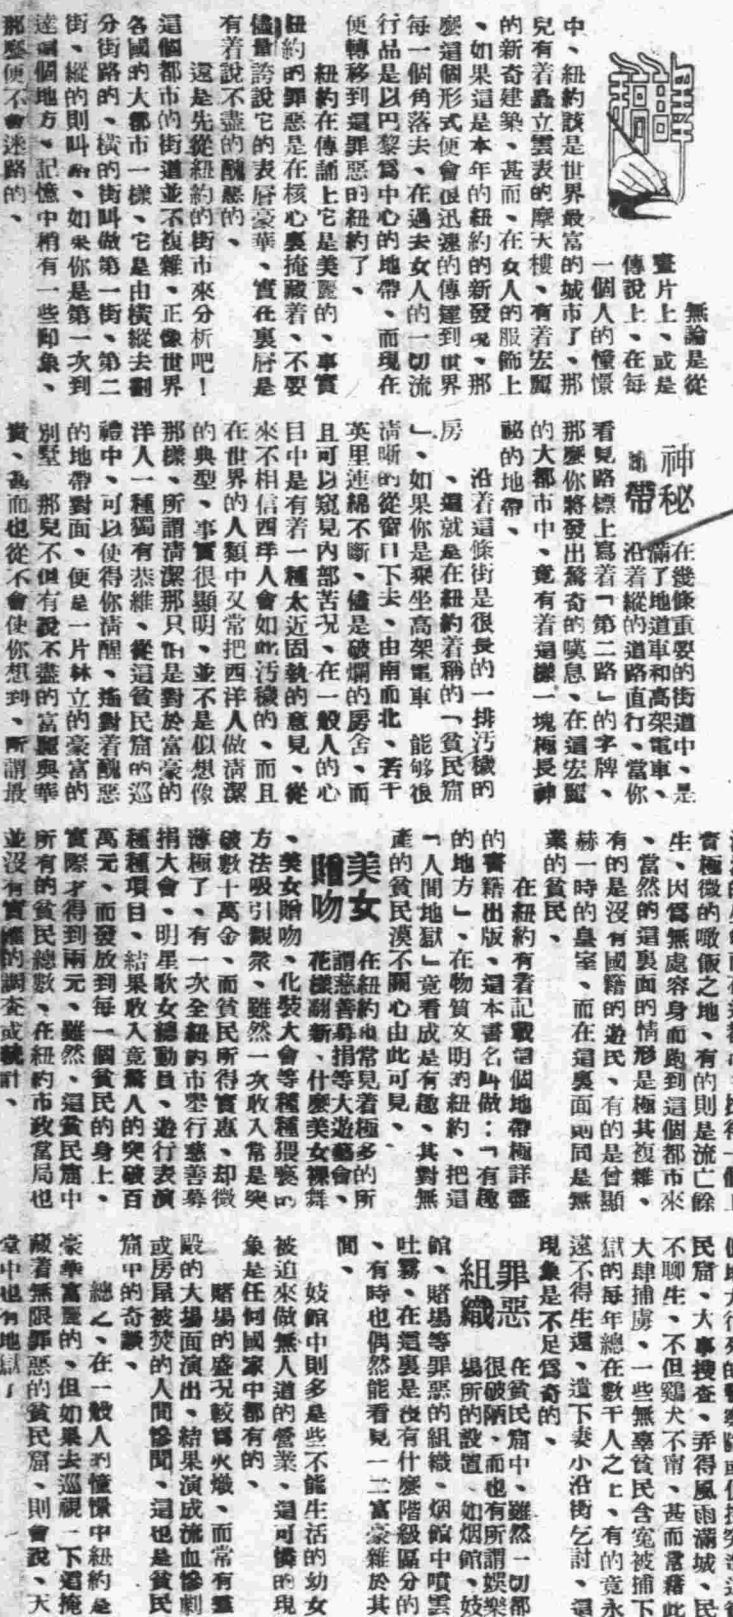 無論是從
畫片上、或是
傳說上、在每
一個人的憧憬
中、紐約該是世界最富的城市了、那
兒有着矗立雲表的摩天樓、有着宏麗
的新奇建築、甚而、在女人的服飾上
、如果這是本年的紐約的新發現、那
麼這個形式便會很迅速的傳達到世界
每一個角落去、在過去女人的一切流
行品是以巴黎爲中心的地帶、而現在
便轉移到這罪惡的紐約了、
紐約在傳誦上它是美麗的、事實
紐約的罪惡是在核心裏掩藏着、不要
儘量誇說它的表層豪華、實在裏層是
有着說不盡的醜惡的、
還是先從紐約的街市來分析吧！
這個都市的街道並不複雜、正像世界
各國的大都市一樣、它是由橫縱去劃
分街路的、橫的街叫做第一街、第二
街、縱的則叫路、如果你是第一次到
達這個地方、記憶中稍有一些印象、
那麼便不會迷路的、
神秘
地帶
在幾條重要的街道中、是
滿了地道車和高架電車、
沿着縱的道路直行、當你
看見路標上寫着「第二路」的字牌、
那麼你將發出驚奇的嘆息、在這宏麗
的大都市中、竟有着這樣一塊極長神
祕的地帶、
沿着這條街是很長的一排汚穢的
房、這就是在紐約着稱的「貧民窟
」、如果你是乘坐高架電車 能够很
清晰的從窗口下去、由南而北、若干
英里連綿不斷、儘是破爛的房舍、而
且可以窺見內部苦况、在一般人的心
目中是有着一種太近固執的意見、從
來不相信西洋人會如此汚穢的、而且
在世界的人類中又常把西洋人做淸潔
的典型、事實很顯明、並不是似想像
那樣、所謂清潔那只怕是對於富豪的
洋人一種獨有恭維、從這貧民窟的巡
禮中、可以使得你清醒、遙對着醜惡
的地帶對面、便是一片林立的豪富的
別墅 那兒不但有說不盡的富麗與華
貴、甚而也從不會使你想到、所謂最
實極微的噉飯之地、有的則是流亡餘
生、因爲無處容身而跑到這個都市來
、當然的這裏面的情形是極其複雜、
有的是沒有國籍的遊民、有的是曾顯
赫一時的皇室、而在這裏面則同是無
業的貧民、
在紐約有着記載這個地帶極詳盡
的書籍出版、這本書名叫做：「有趣
的地方」、在物質文明的紐約、把這
「人間地獄」竟看成是有趣、其對無
產的貧民漠不關心由此可見、
美女
贈吻
在紐約也常見着極多的所
謂慈善募捐等大遊藝會、
花樣翻新、什麼美女裸舞
、美女贈吻、化裝大會等種種猥褻的
方法吸引觀衆、雖然一次收入常是突
破數十萬金、而貧民所得實惠、却微
薄極了、有一次全紐約市舉行慈善募
捐大會、明星歌女總動員、遊行表演
種種項目、結果收入竟驚人的突破百
萬元、而發放到每一個貧民的身上、
實際才得到兩元、雖然、這貧民窟中
所有的貧民總數、在紐約市政當局也
並沒有實確的調查或統計、
民窟、大事搜查、弄得風雨滿城、民
不聊生、不但鷄犬不甯、甚而常藉此
大肆捕虜、一些無辜貧民含寃被捕下
獄的每年總在數千人之上、有的竟永
遠不得生還、遺下妻小沿街乞討、這
現象是不足爲奇的、
罪惡
組織
在貧民窟中、雖然一切都
很破陋、而也有所謂娛樂
塲所的設置、如烟館、妓
館、賭塲等罪惡的組織、烟館中噴雲
吐霧、在這裏是沒有什麼階級區分的
、有時也偶然能看見一二富豪雜於其
間、
妓館中則多是些不能生活的幼女
被迫來做無人道的營業、這可憐的現
象是任何國家中都有的、
賭塲的盛况較爲火熾、而常有鬬
毆的大塲面演出、結果演成流血慘劇
或房屋被焚的人間慘聞、這也是貧民
窟中的奇談、
總之、在一般人的憧憬中紐約是
豪華富麗的、但如果去巡視一下這掩
藏着無限罪惡的貧民窟、則會說、天
堂中也有地獄了